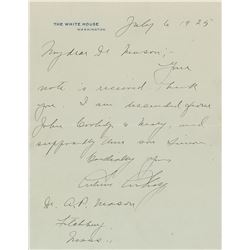 THE WHITE HOUSE
WASHINGTON
July 6 1925
My dear Dr Mason;-
Your
note is received. Thank
you. I am descended from
John Coolidge & Mary, and
supposedly thru son Simon
Cordially yours
Calvin Coolidge
Dr. A.P. Mason
Fitchburg
Mass.,